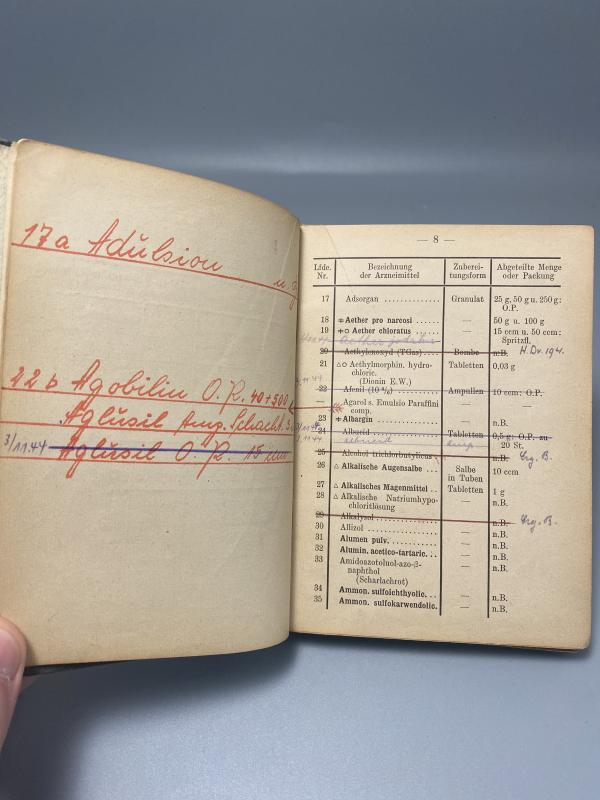 17a Adŭlsion
22b Agobilin O.P. 40+500
Aglŭsil Amp. Schacht.
3/11.44 Aglŭsil O.P. 15
— 8 —
Lfde. Nr. Bezeichnung der Arzneimittel Zubereitungsform Abgeteilte Menge oder Packung
17 Adsorgan Granulat 25 g, 50 g u. 250 g; O.P.
18 Aether pro narcosi — 50 g u. 100 g
19 Aether chloratus — 15 ccm u. 50 ccm; Spritzfl.
20 Aethylenoxyd (TGas) Bombe n.B. H.Dv. 194.
21 △○ Aethylmorphin. hydrochloric. (Dionin E.W.) Tabletten 0,03 g
22 Afenil (10 %) Ampullen 10 ccm; O.P.
— Agarol s. Emulsio Paraffini comp. — —
23 Albargin — n.B.
24 Albucid Tabletten 0,5 g; O.P. zu 20 St.
25 Alcohol trichlorbutylicus — n.B. Erg. B.
26 △ Alkalische Augensalbe Salbe in Tuben 10 ccm
27 △ Alkalisches Magenmittel Tabletten 1 g
28 △ Alkalische Natriumhypochloritlösung — n.B.
29 Alkalysol — n.B. Erg. B.
30 Allizol — n.B.
31 Alumen pulv. — n.B.
32 Alumin. acetico-tartaric. — n.B.
33 Amidoazotoluol-azo-β-naphthol (Scharlachrot) — n.B.
34 Ammon. sulfoichthyolic. — n.B.
35 Ammon. sulfokarwendolic. — n.B.